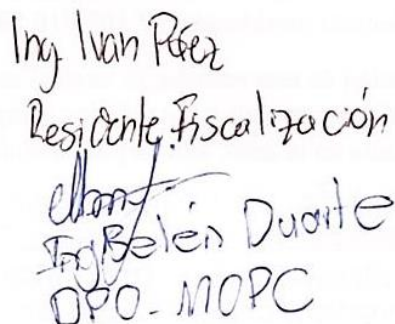 Ing. Ivan Pérez
Residente Fiscalización
Ing Belén Duarte
DPO - MOPC